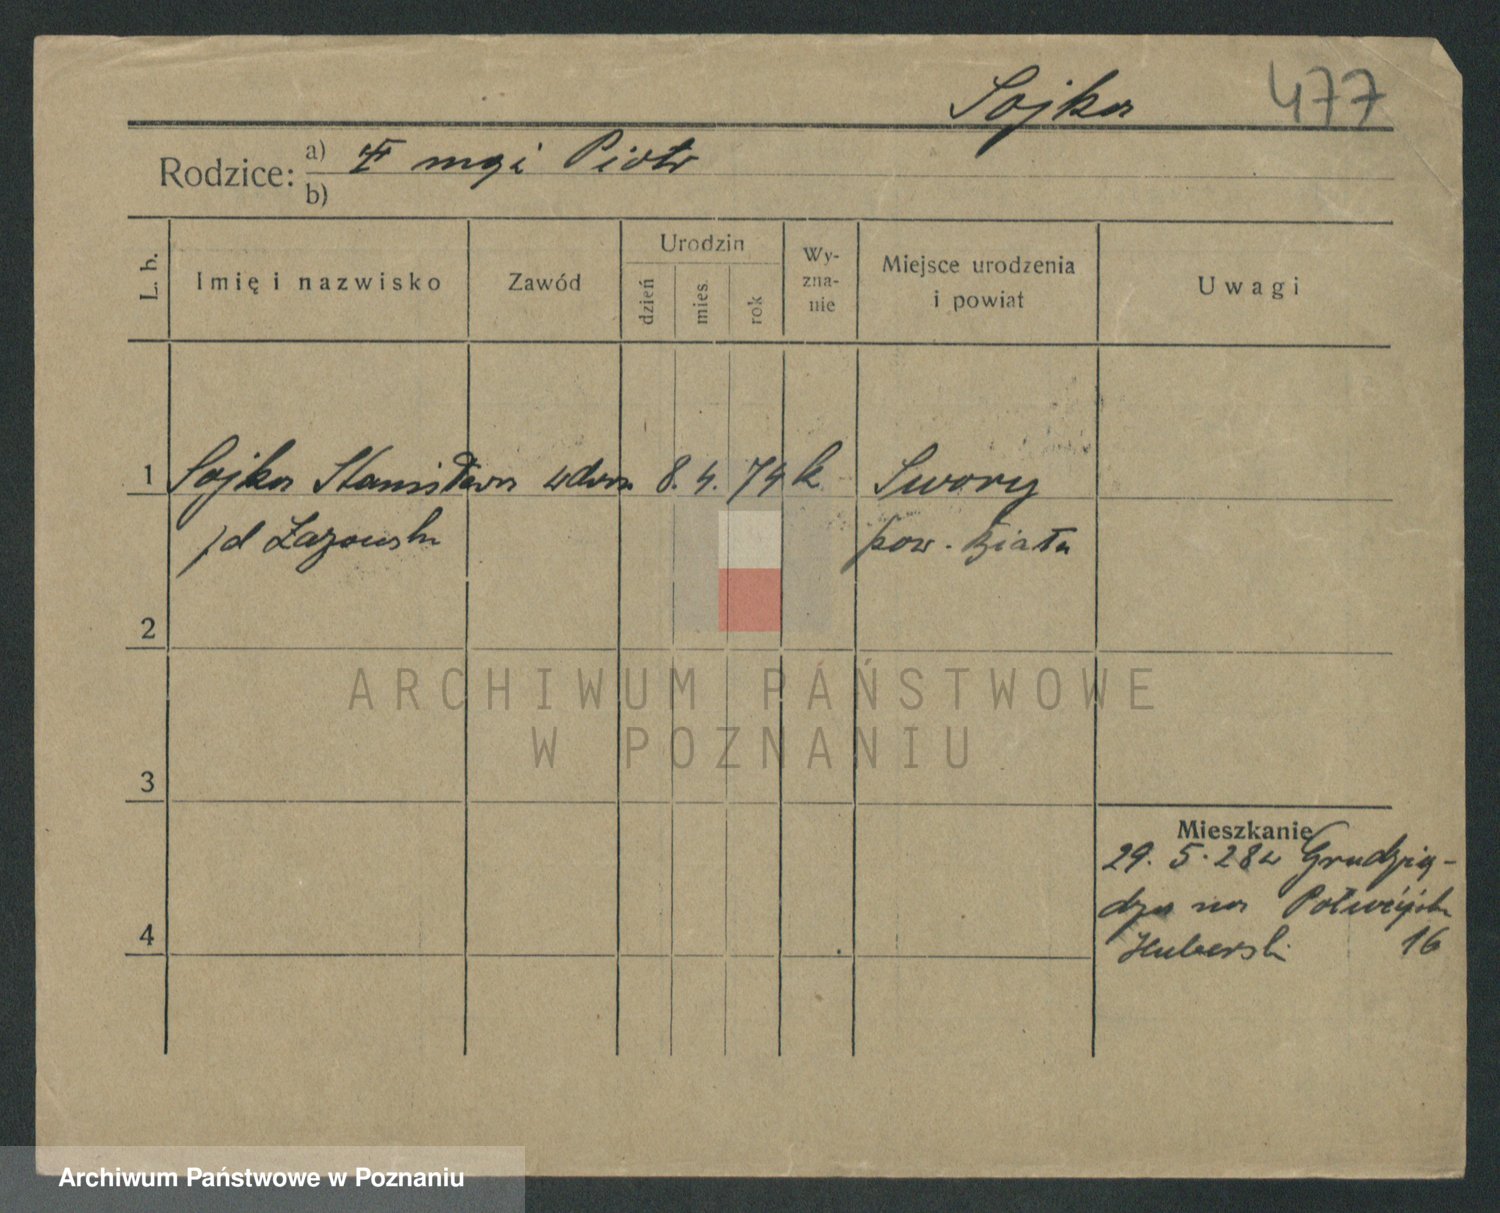 Sojka 477
Rodzice: a) mąż Piotr
b)
L. b. Imię i nazwisko Zawód Urodzin dzień mies. rok Wy-zna-nie Miejsce urodzenia i powiat Uwagi
1 Sojka Stanisława wdowa 8. 4. 74 k Swory
/d Łazowska pow. Biała
2
ARCHIWUM PAŃSTWOWE
W POZNANIU
3
Mieszkanie
29. 5. 28 z Grudzią-
dza na Półwiejska
4 16
Archiwum Państwowe w Poznaniu